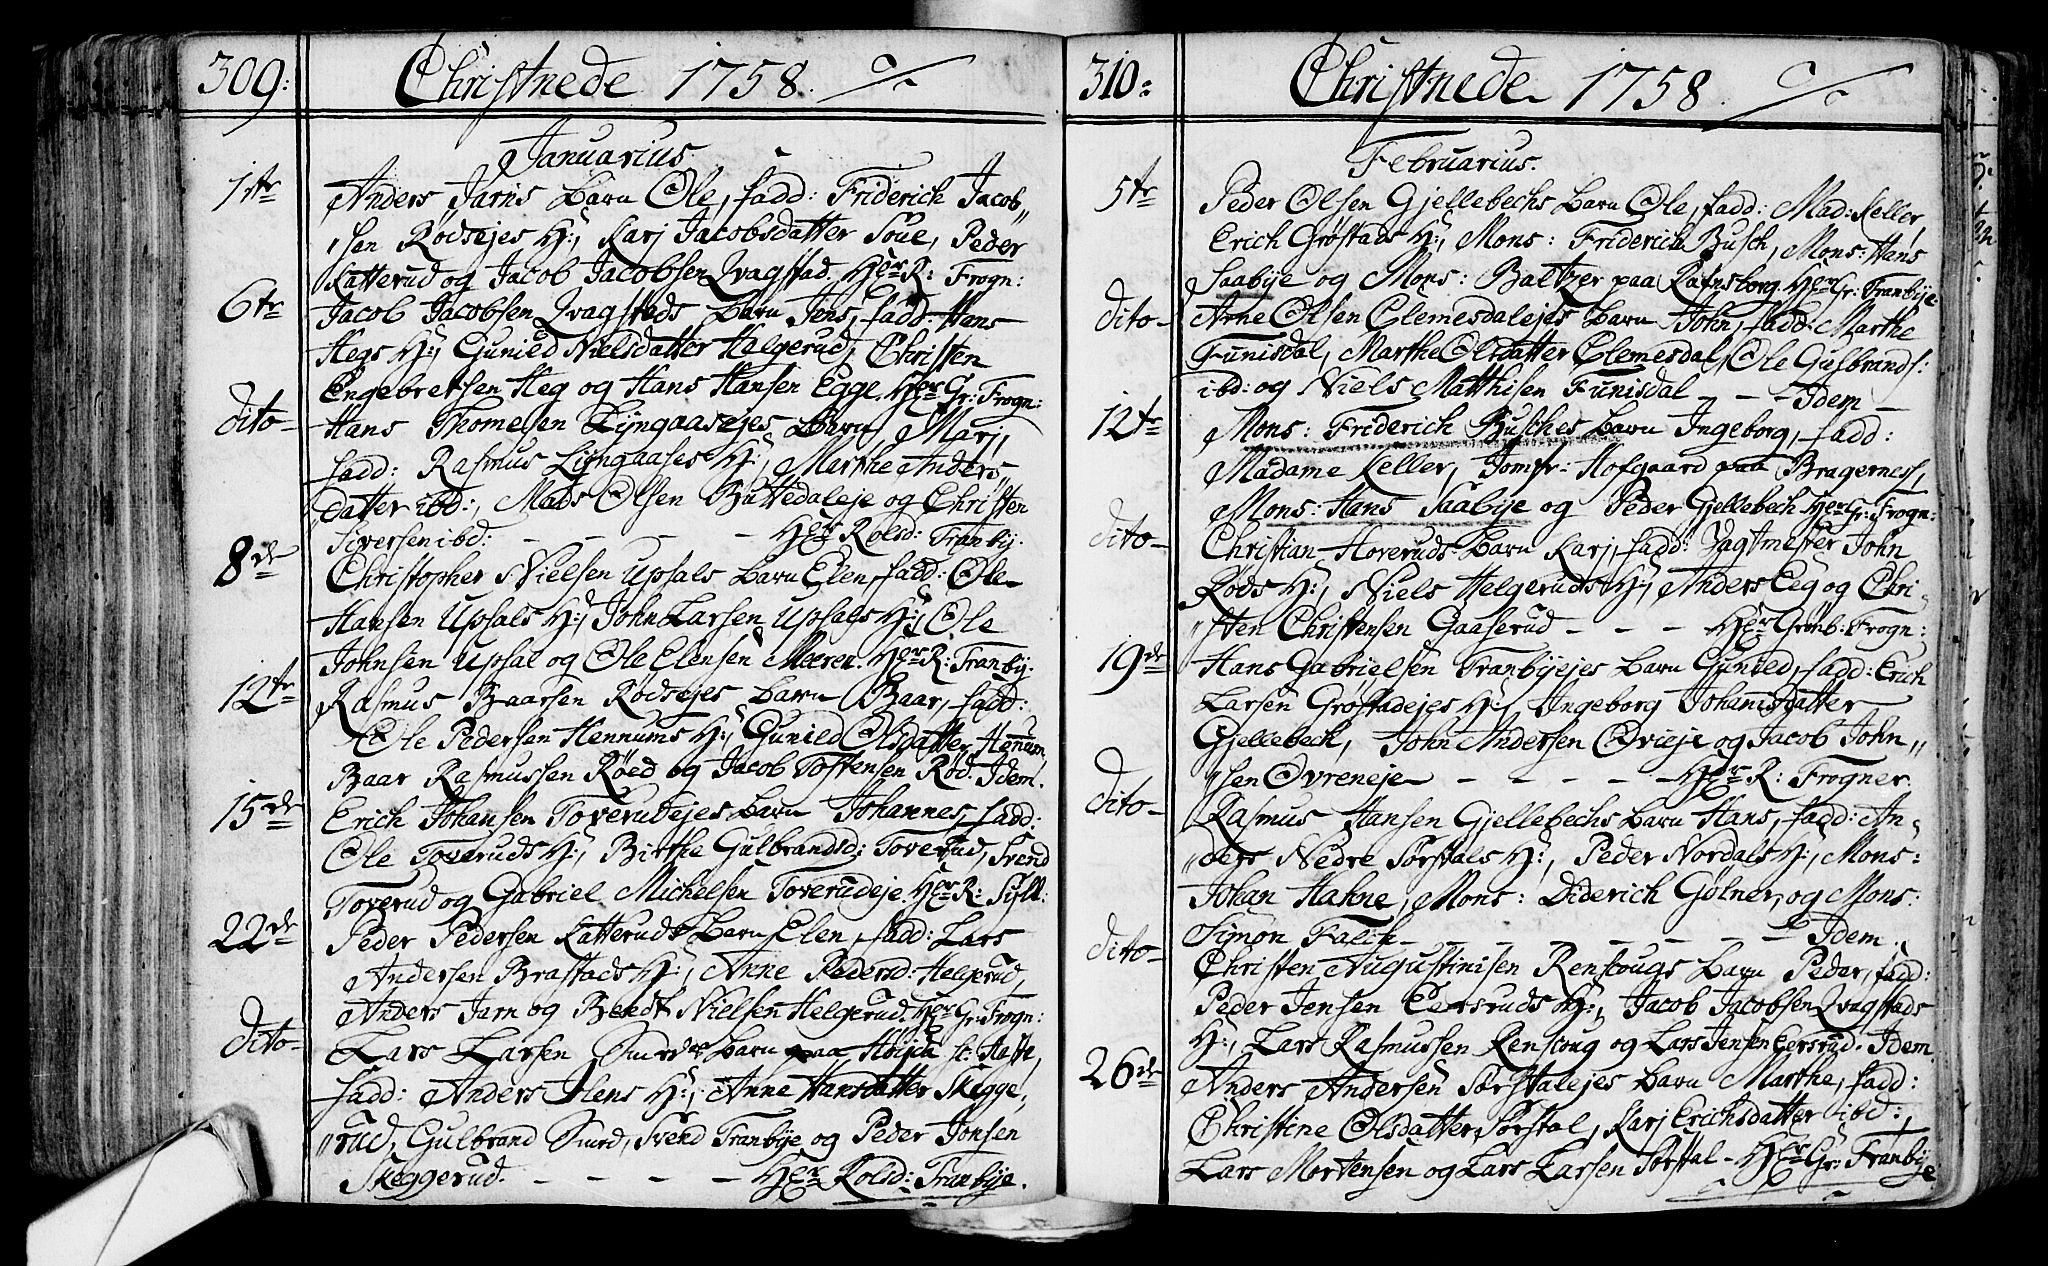 309:
Christnede 1758.
Januarius
1ste
Anders Jarns barn Ole, fadd: Friderich Jacob„
„sen Rödsejes H:, Karj Jacobsdatter Söue, Peder
Katterud og Jacob Jacobsen Qvagstad. Hr R: Frogn:
6te
Jacob Jacobsen Qvagstads barn Jens, fadd: Hans
Hegs H:, Gunied Nielsdatter Helgerud, Christen
Engebretsen Heg og Hans Hansen Egge. Hr Gr: Frogn:
dito-
Hans Thomesen Lijngaasejes barn Marj,
fadd: Rasmus Lijngaases H:, Marthe Anders„
datter ibd:, Mads Olsen Buttedaleje og Christen
Siversen ibd: - - - - - Hr Rolsd: Tranbij.
8de
Christopher Nielsen Upsals barn Elen, fadd: Ole
Hansen Upsals H:, John Larsen Upsals H:, Ole
Johnsen Upsal og Ole Elensen Meeren. Hr R: Tranbij.
12te
Rasmus Baarsen Rödsejes barn Baar, fadd:
Ole Pedersen Hennums H:, Gunied Olsdatter Hennum,
Baar Rasmussen Röed og Jacob Tostensen Röd. Idem.
15de
Erich Johansen Toverudejes barn Johannes, fadd:
Ole Toveruds H:, Birthe Gulbrandsd: Toverud, Svend
Toverud og Gabriel Michelsen Toverudeje. Hr R: Sijll:
22de
Peder Pedersen Katteruds barn Elen, fadd: Lars
Andersen Brastads H:, Anne Pedersd: Helgerud,
Anders Jarn og Bendt Nielsen Helgerud. Hr Gr: Frogn:
dito-
Lars Larsen Smeds barn paa
fadd: Anders H:, Anne Hansdatter Skegge„
„rud, Gulbrand Smed, Svend Tranbije og Peder Jonsen
Skeggerud. - - - - - Hr Rolsd: Tranbije.
310:
Christnede 1758.
Februarius.
5te
Peder Olsen Gjellebechs barn Ole, fadd: Mad: Keller,
Erich Gröstads H:, Mons: Friderich Busch, Mons: Hans
Saabije og Mons: Baltzer paa Rafnsborg. Hr Gr: Tranbije
dito-
Arne Olsen Clemesdalejes barn John, fadd: Marthe
Funisdal, Marthe Olsdatter Clemesdal, Ole Gulbrands:
ibd: og Niels Matthisen Funisdal - - - Idem -
12te
Mons: Friderich Busches barn Ingeborg, fadd:
Madame Keller, Jomfr: Hofgaard paa Bragerness,
Mons: Hans Saabije og Peder Gjellebech Hr Gr: Frogn:
dito-
Christian Hoveruds barn Karj, fadd: Jagtmester John
Röds H:, Niels Helgeruds H:, Anders Eeg og Chri„
„sten Christensen Gaaserud - - - Hr Grönb: Frogn:
19de
Hans Gabrielsen Tranbijejes barn Gunied, fadd: Erich
Larsen Gröstadejes H:, Ingeborg Johannsdatter
Gjellebech, John Andersen Ovnje og Jacob John„
„sen Ovreneje - - - - - Hr R: Frogner.
dito-
Rasmus Hansen Gjellebechs barn Hans, fadd: An„
„ders Nedre Sörstals H:, Peder Nordals H:, Mons:
Johan Hahne, Mons: Diderich Gölner, og Mons:
Simon Falch - - - - - - - Idem.
dito-
Christen Augustinisen Renscougs barn Peder, fadd:
Peder Jensen Eersruds H:, Jacob Jacobsen Qvagstads
H:, Lars Rasmussen Renscoug og Lars Jensen Eersrud. Idem.
26de
Anders Andersen Sörstalejes barn Marthe, fadd:
Christine Olsdatter Sörstal, Karj Erichsdatter ibd:,
Lars Mortensen og Lars Larsen Sörstal - Hr Gr: Tranbije